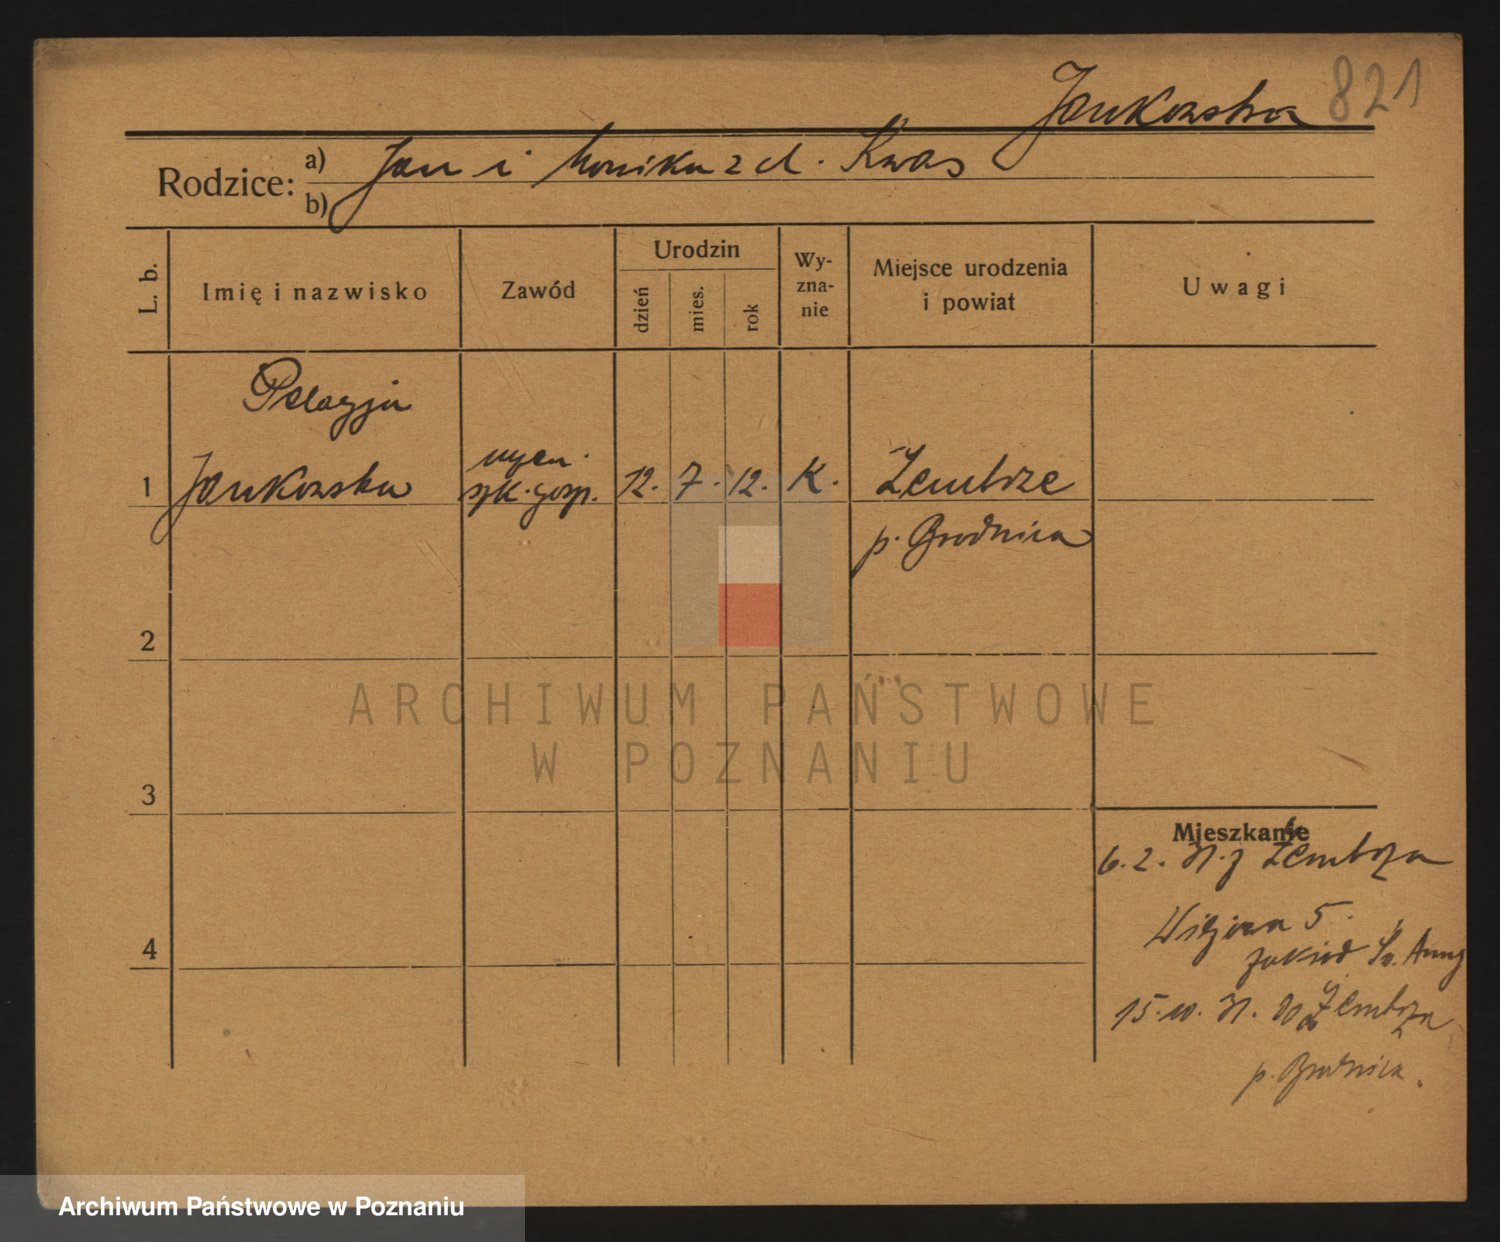 Jankowska 821
Rodzice: a) Jan i Monika z d. Kwas
b)
L. b. Imię i nazwisko Zawód Urodzin dzień mies. rok Wyznanie Miejsce urodzenia i powiat Uwagi
Pelagja
1 Jankowska uczen. szk. gosp. 12. 7. 12. K. Zembrze
p. Brodnica
2
3
4
Mieszkanie
6. 2. Zembrza
5.
zakład Św. Anny
15. Zembrza
p. Brodnica.
ARCHIWUM PAŃSTWOWE
W POZNANIU
Archiwum Państwowe w Poznaniu